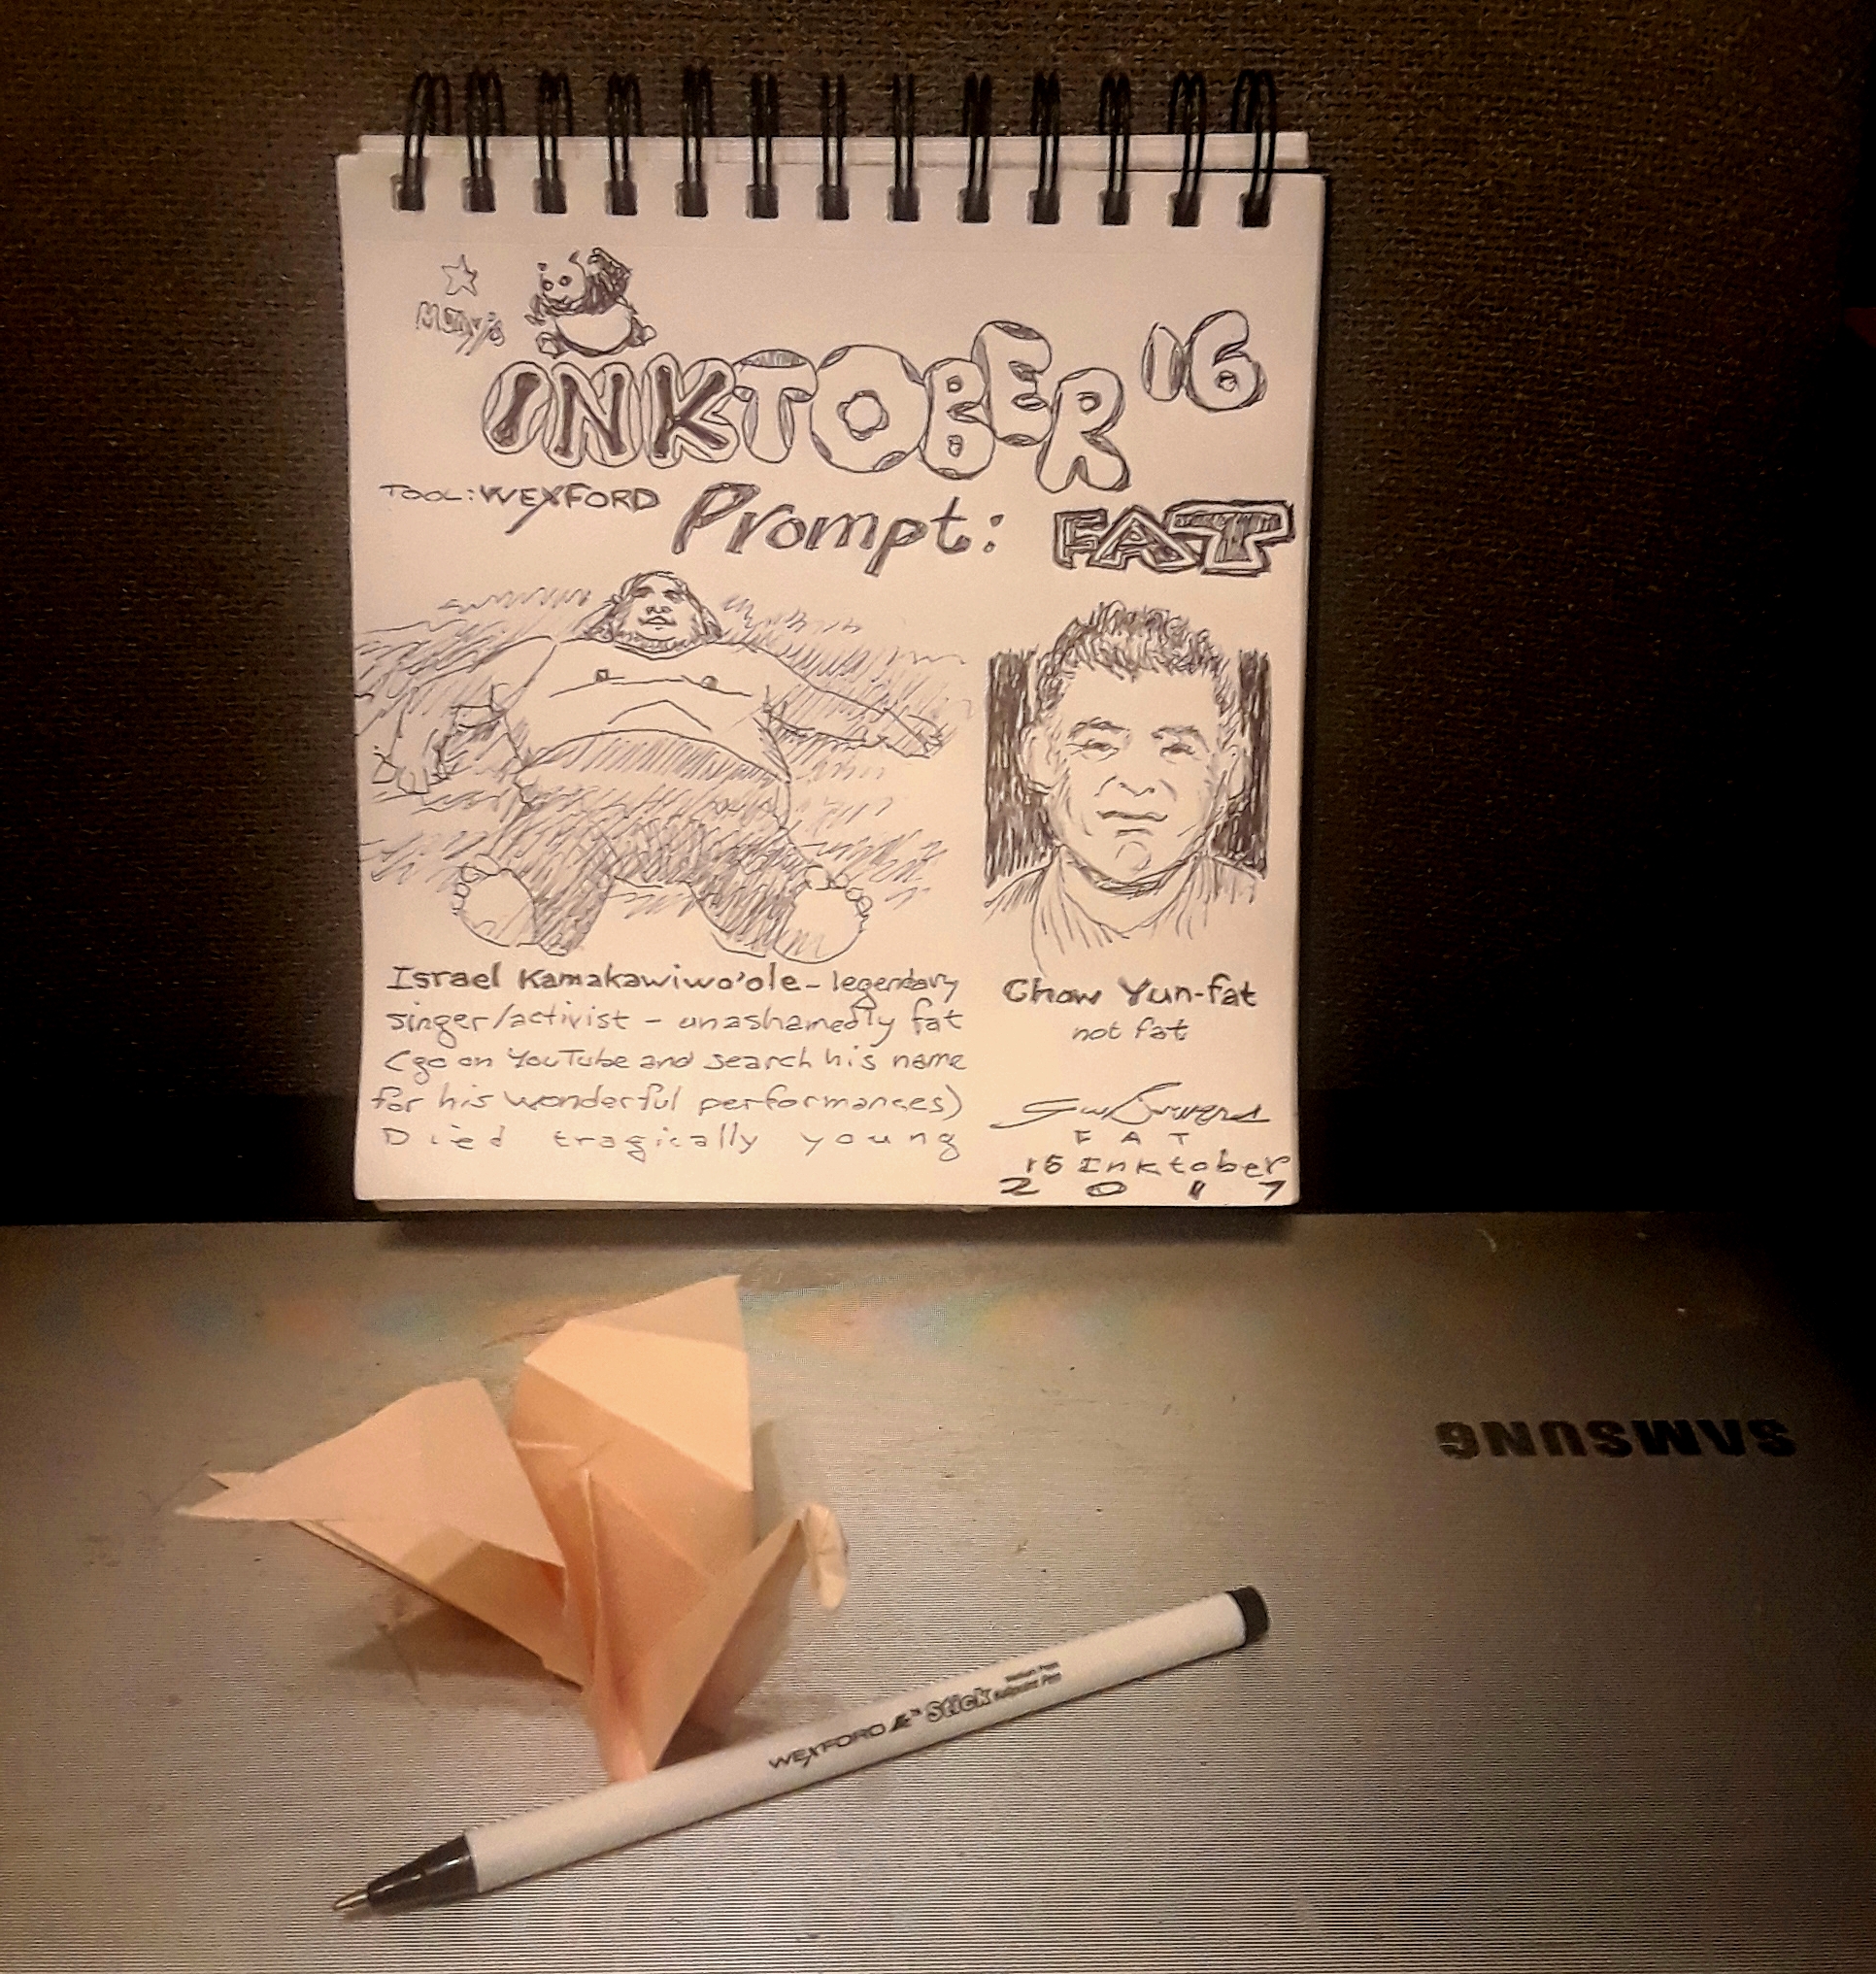 Macy's
INKTOBER 16
TOOL: WEXFORD Prompt: FAT
Israel Kamakawiwo'ole – legendary
singer/activist – unashamedly fat
(go on YouTube and search his name
for his wonderful performances)
Died tragically young
Chow Yun-fat
not fat
FAT
16 Inktober
2017
SAMSUNG
WEXFORD Stick